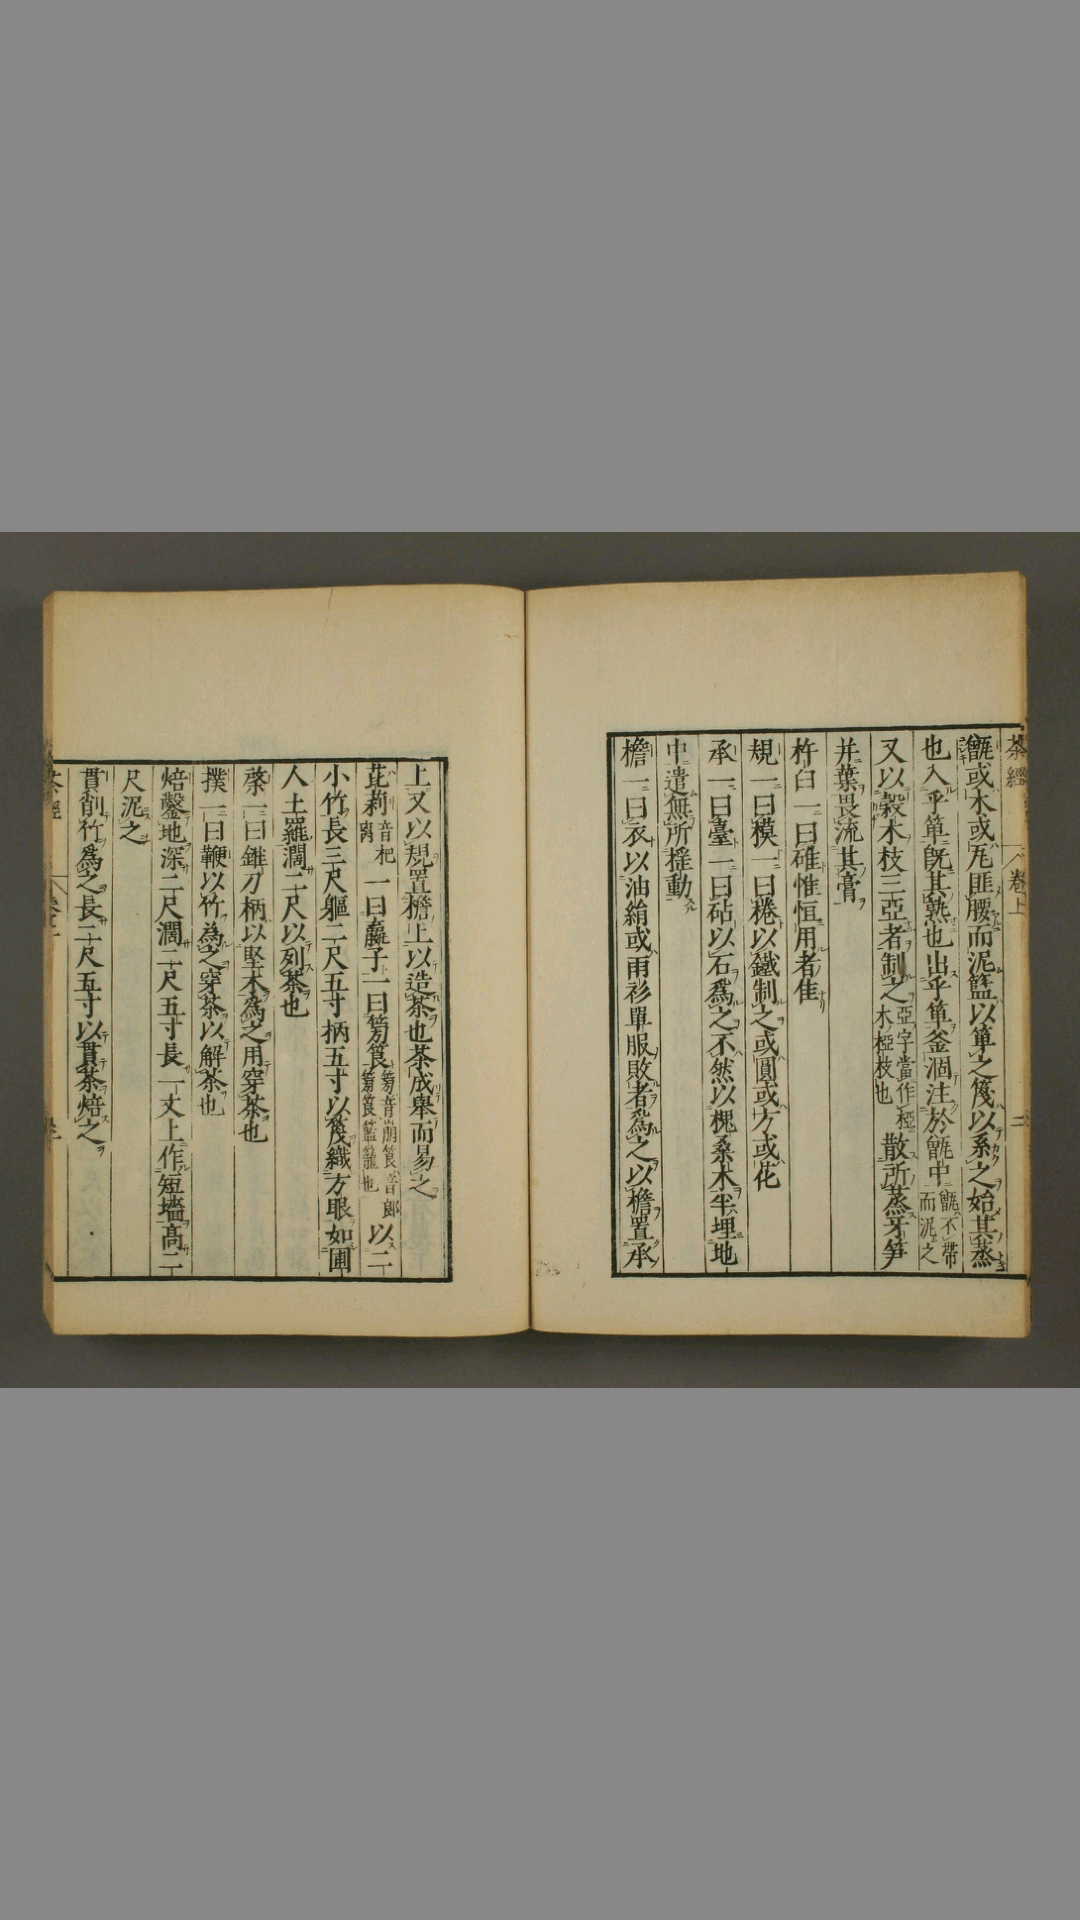 茶經 卷上 二
甑或木或瓦匪腰而泥籃以箄之篾以系之始其蒸
也入乎箄旣其熟也出乎箄釜涸注於甑中甑不帶而泥之
又以榖木枝三亞者制之亞字當作椏木椏枝也散所蒸牙笋
并葉畏流其膏
杵臼一曰碓惟恒用者隹
規一曰模一曰棬以鐵制之或圓或方或花
承一曰臺一曰砧以石爲之不然以槐桑木半埋地
中遣無所揺動
檐一曰衣以油絹或雨衫單服敗者爲之以檐置承
上又以規置檐上以造茶也茶成舉而易之
芘莉音杷离一曰羸子一曰篣筤篣音崩筤音郎篣筤籃籠也以二
小竹長三尺軀二尺五寸柄五寸以篾織方眼如圃
人土羅濶二尺以列茶也
棨一曰錐刀柄以堅木爲之用穿茶也
撲一曰鞭以竹爲之穿茶以解茶也
焙鑿地深二尺濶二尺五寸長一丈上作短墻髙二
尺泥之
貫削竹爲之長二尺五寸以貫茶焙之
茶經